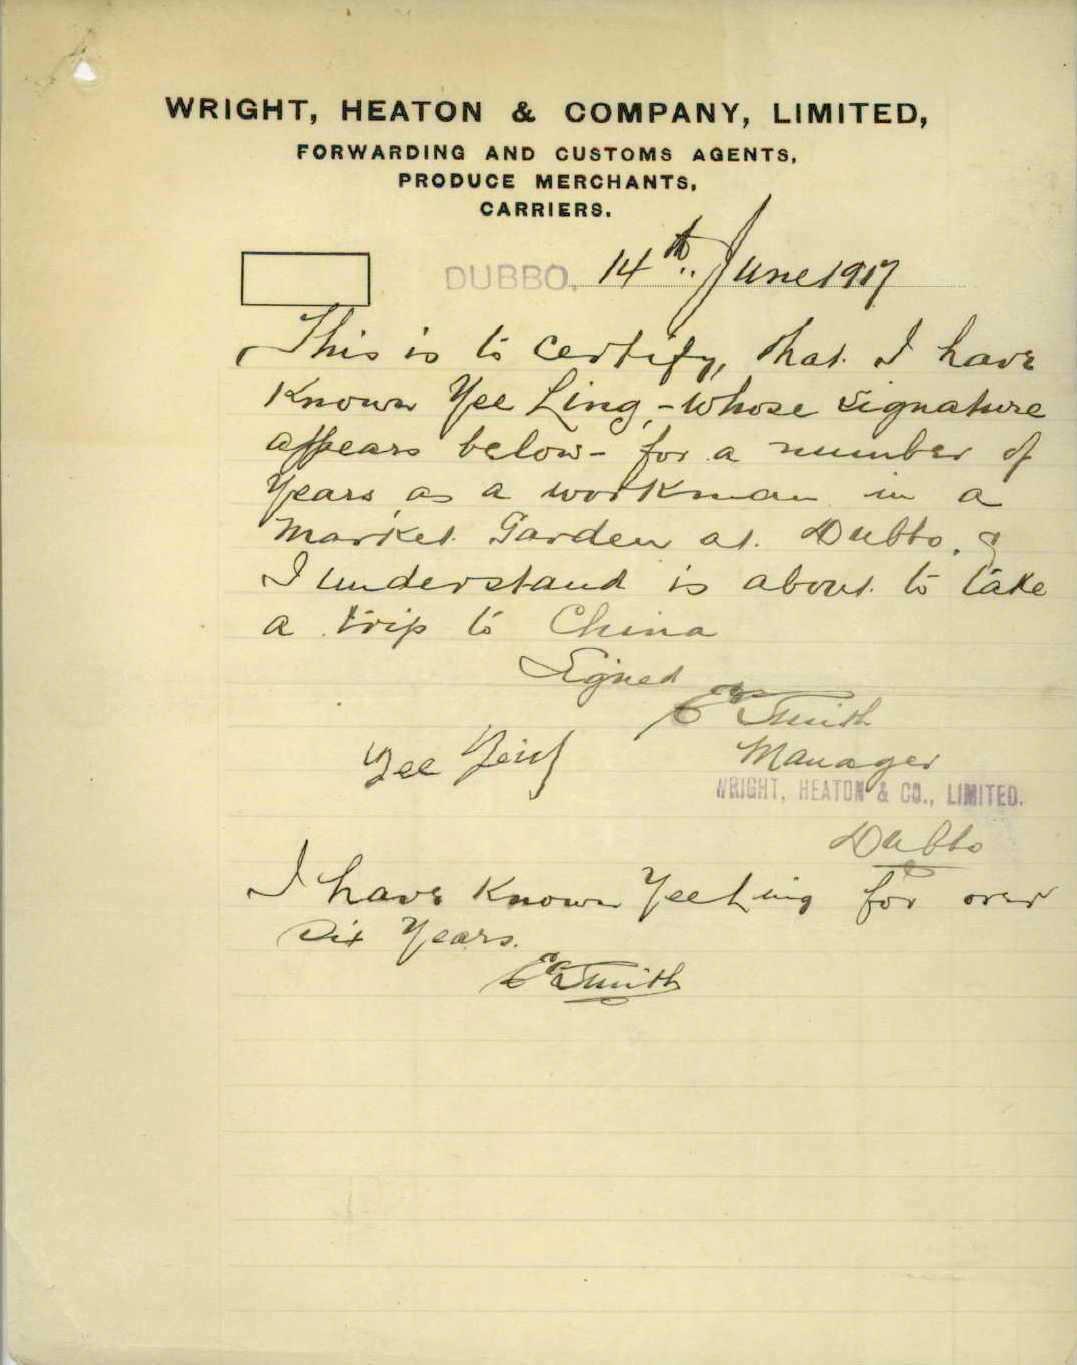 WRIGHT, HEATON & COMPANY, LIMITED,
FORWARDING AND CUSTOMS AGENTS,
PRODUCE MERCHANTS,
CARRIERS.
DUBBO, 14th.. June 1917
This is to certify, that I have
Known Yee Ling, - whose signature
appears below - for a number of
Years as a workman in a
Market Garden at Dubbo, &
I understand is about to take
a trip to China
Signed
E Smith
Yee
Manager
WRIGHT, HEATON & CO., LIMITED.
Dubbo
I have Known Yee Ling for over
Six Years.
E Smith